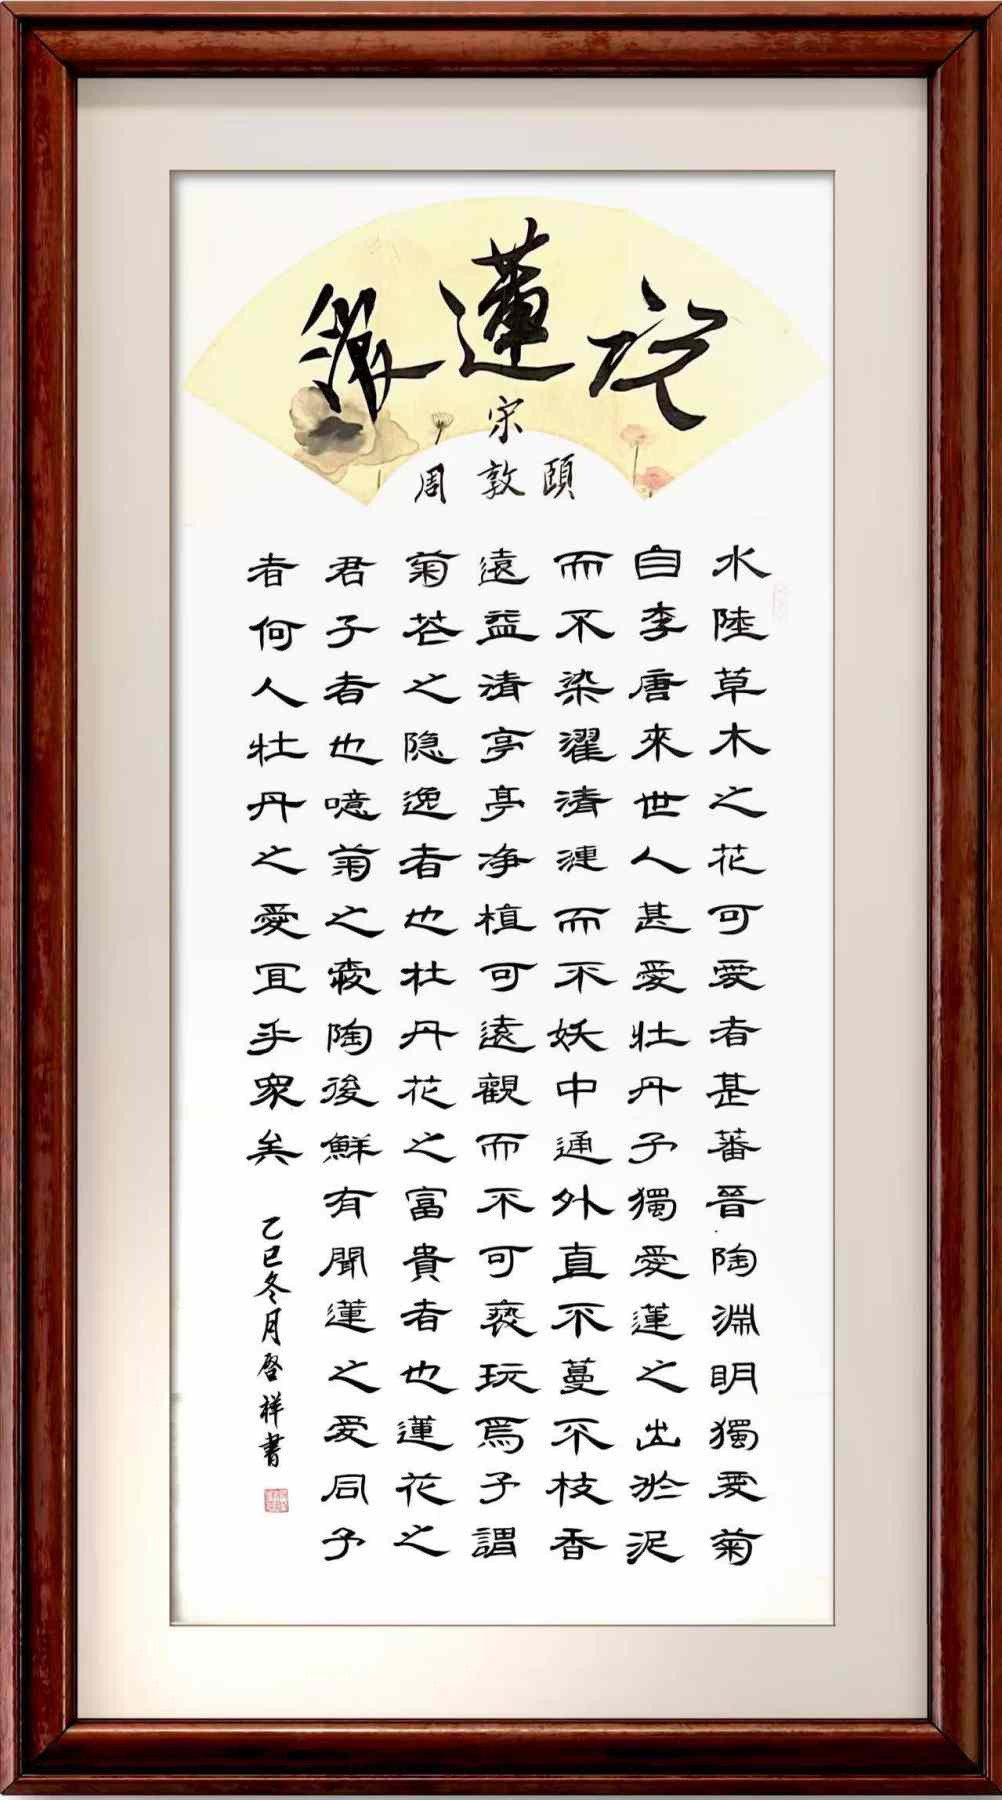 愛蓮说
宋
周敦頤
水陸草木之花可爱者甚蕃晉陶淵明獨爱菊
自李唐來世人甚愛牡丹予獨愛蓮之出淤泥
而不染濯清漣而不妖中通外直不蔓不枝香
遠益清亭亭净植可遠觀而不可褻玩焉予謂
菊花之隐逸者也牡丹花之富貴者也蓮花之
君子者也噫菊之愛陶後鮮有聞蓮之爱同予
者何人牡丹之愛宜乎眾矣
乙巳冬月啓祥書